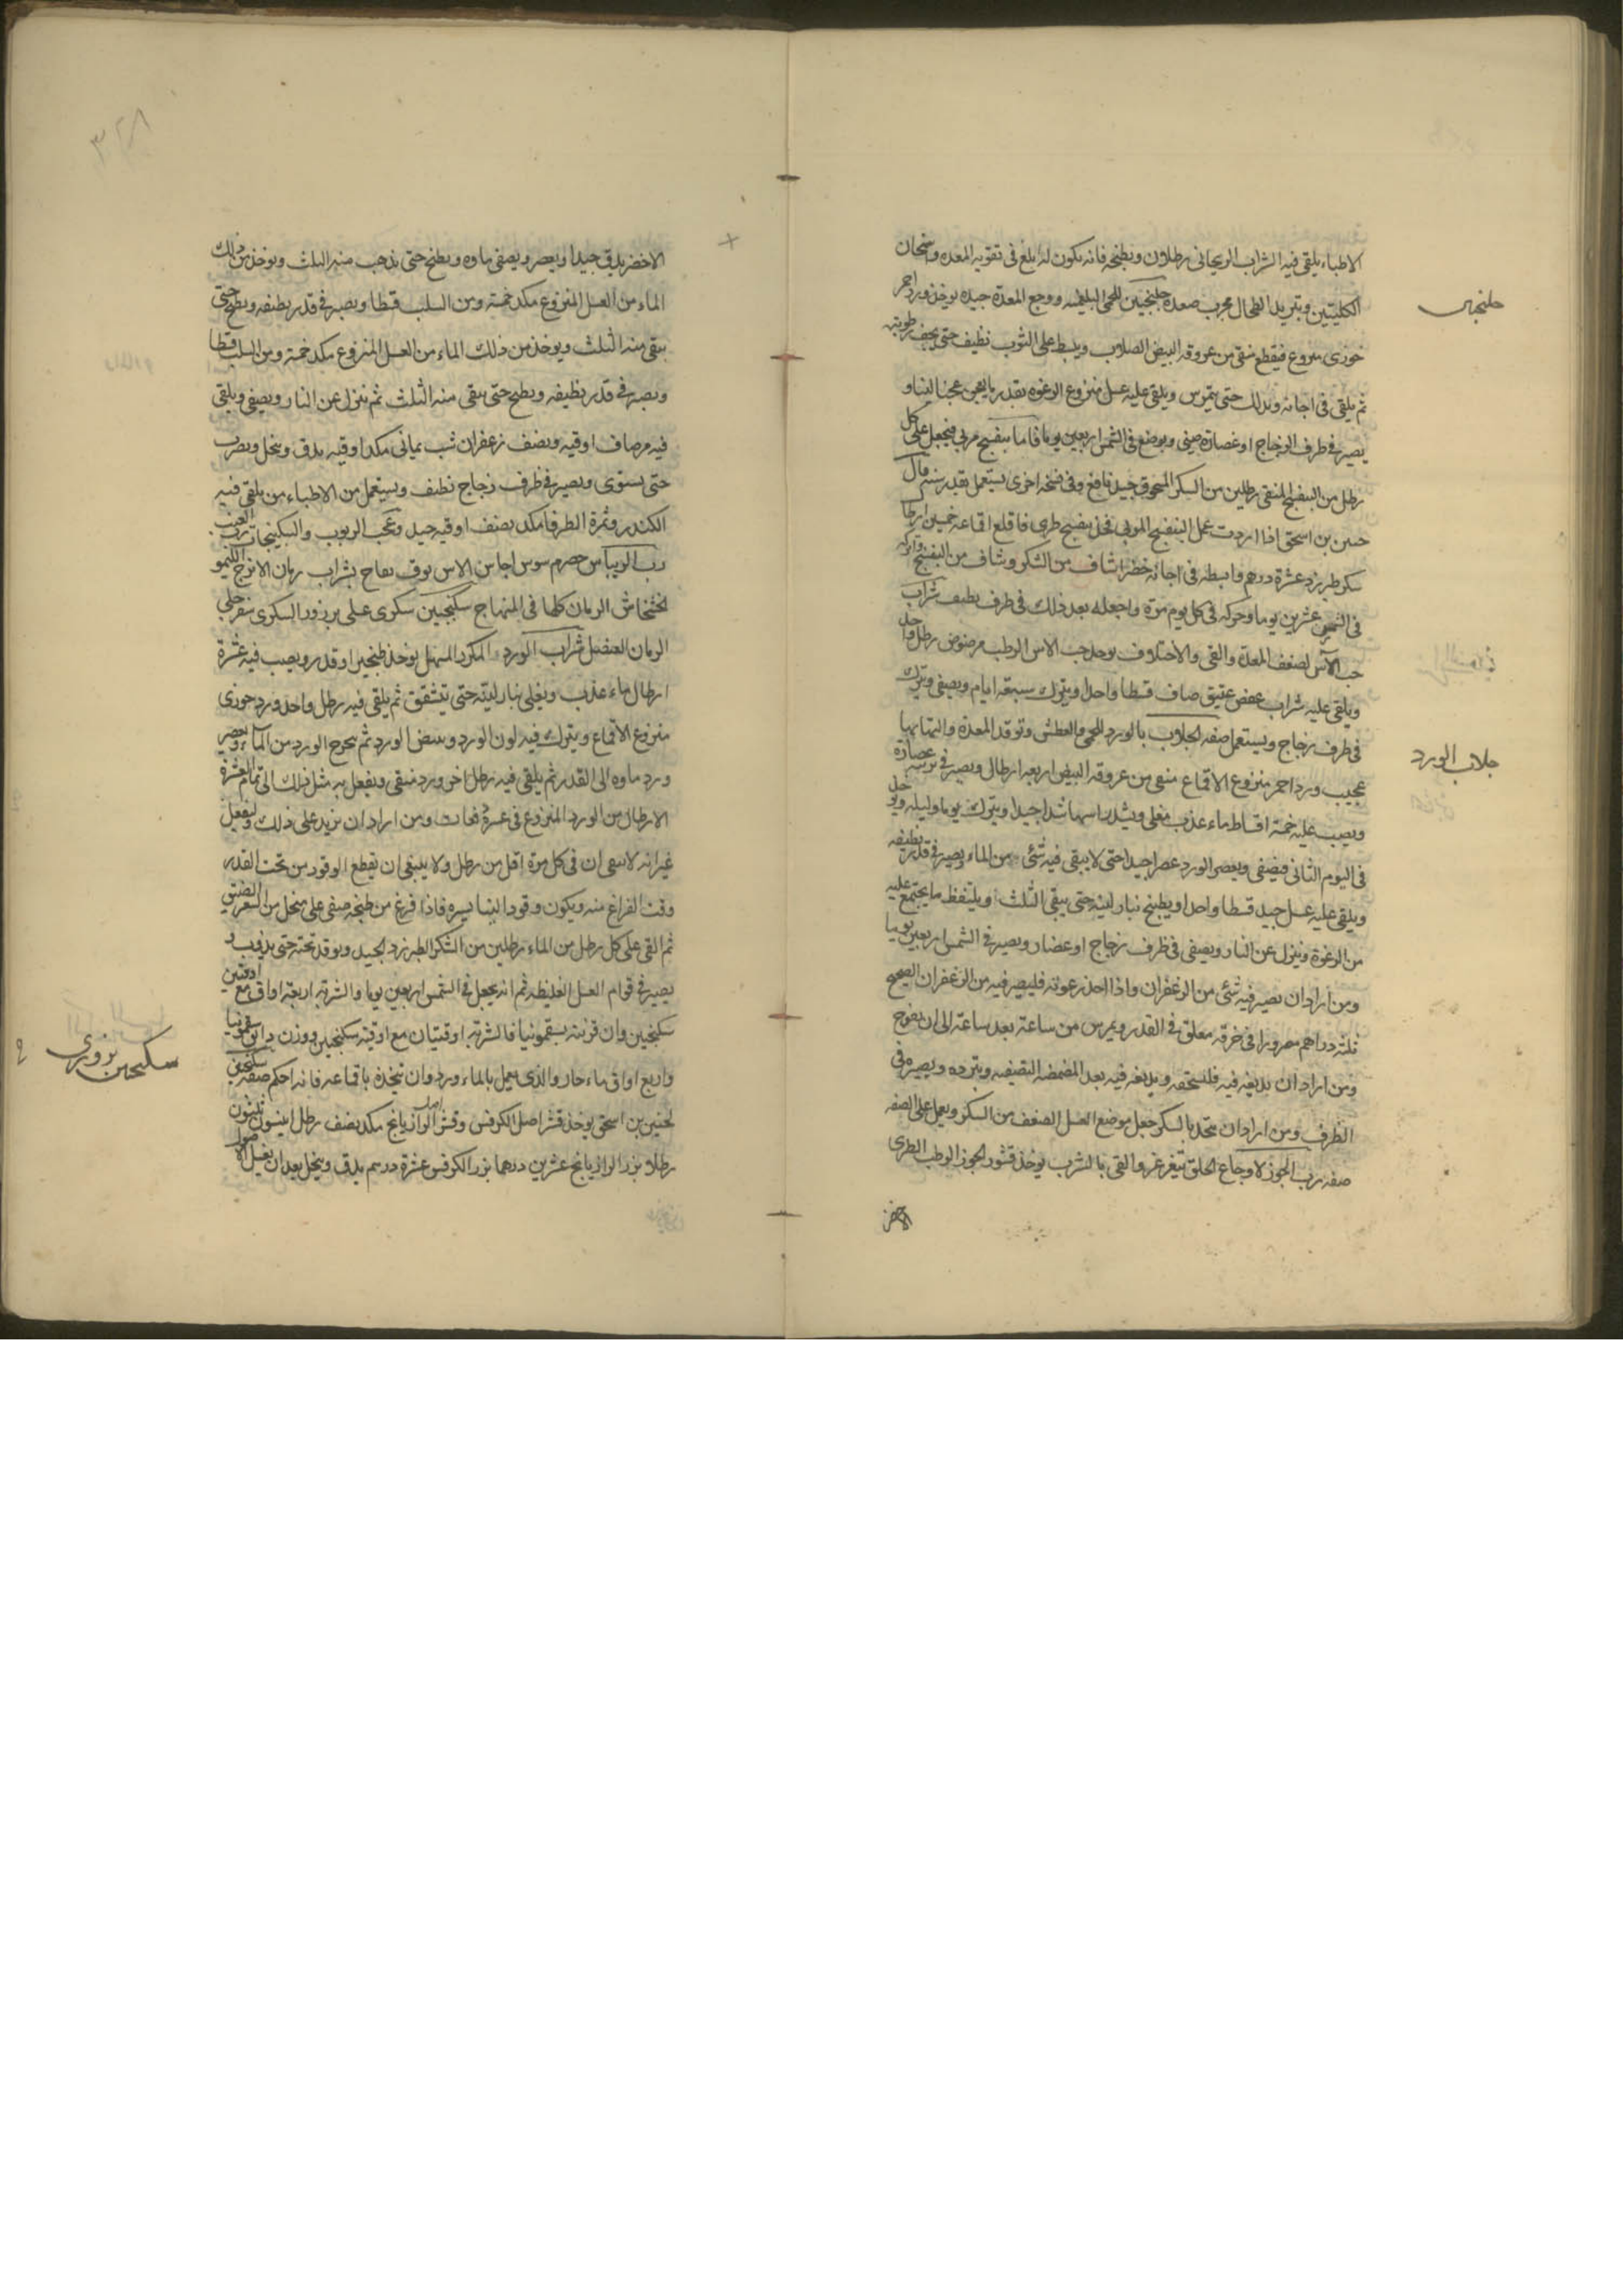 الاطباء يلقى فيه الشراب الريحانى رطلان ويطبخه فانه يكون له ابلغ فى تقويه المعده واسخان
الكليتين وتبريد الطحال مجرب صفة جلنجبين للحمى البلغميه ووجع المعدة جيده يوخذ ورد احمر
جلنجبين
خوزى منزوع فيقطع منقى من عروقه البيض الصلاب ويبسط على الثوب نظيف حتى يجف رطوبته
ثم يلقى فى اجانه ويدلك حتى يتمرس ويلقى عليه عسل منزوع الرغوه بقدر ما يعجن عجنا لينا و
يصير فى ظرف الزجاج او غضارة صينى ويوضع فى الشمس اربعين يوما فاما بنفسج مربى فيجعل على كل
رطل من البنفسج المنقى رطلين من السكر المسحوق جيد نافع وفى نسخه اخرى يستعمل بقدر سنه قال
حنين بن اسحق اذا اردت عمل البنفسج المربى فخذ بنفسج طرى فاقلع اقماعه خمسين ارطال
سكر طبرزد عشرة درهم وابسطه فى اجانه خضرا شاف من السكر وشاف من البنفسج واتركه
فى الشمس عشرين يوما وحركه فى كل يوم مرة واجعله بعد ذلك فى ظرف نظيف شراب
حب الآس لضعف المعدة والقى والاختلاف يوخذ حب الاس الرطب مرضوض رطل واحد
ويلقى عليه شراب عفص عتيق صاف قسطا واحدا ويترك سبعة ايام ويصفى ويترك
فى ظرف زجاج ويستعمل صفه الجلاب بالورد للحمى والعطش وتوقد المعدة والتهابها
جلاب الورد
عجيب ورد احمر منزوع الاقماع منقى من عروقه البيض اربعه ارطال ويصير فى برنيه غضارة
ويصب عليه خمسة اقساط ماء عذب مغلى ويشد راسها شدا جيدا ويترك يوما وليله ويوخذ
فى اليوم الثانى فيصفى ويعصر الورد عصرا جيدا حتى لا يبقى فيه شئ من الماء ويصير فى قدر نظيفه
ويلقى عليه عسل جيد قسطا واحدا ويطبخ بنار لينه حتى يبقى الثلث ويلتقط ما يجتمع عليه
من الرغوة وينزل عن النار ويصفى فى ظرف زجاج او غضار ويصير فى الشمس اربعين يوما
ومن اراد ان يصير فيه شئ من الزعفران واذا اخذ رغوته فليصير فيه من الزعفران الصحيح
ثلثه دراهم مصرورا فى خرقه معلق فى القدر ويمرس من ساعة بعد ساعة الى ان يفوح
ومن اراد ان يديفه فيه فليسحقه ويديفه فيه بعد التصفيه وتبرده ويصيره فى
الظرف ومن اراد ان يتخذ بالسكر جعل موضع العسل الضعف من السكر ويعمل على الصفه
صفه رب الجوز لاوجاع الحلق يتغرغر والقى بالشرب يوخذ قشور الجوز الرطب الطرى
الاخضر
٣٢٨
الاخضر يدق جيدا ويعصر ويصفى ماوه ويطبخ حتى يذهب منه الثلث ويوخذ من ذلك
الماء من العسل المنزوع مكد خمسة ومن السلب قسطا ويصير فى قدر نظيفه ويطبخ حتى
يبقى منه الثلث ويوخذ من ذلك الماء من العسل المنزوع مكد خمسة ومن السلب قسطا
ويصير فى قدر نظيفه ويطبخ حتى يبقى منه الثلث ثم ينزل عن النار ويصفى ويلقى
فيه مر صاف اوقيه ونصف زعفران شب يمانى مكد اوقيه يدق وينخل ويضرب
حتى يستوى ويصير فى ظرف زجاج نظيف ويستعمل من الاطباء من يلقى فيه
الكندر وثمرة الطرفا مكد نصف اوقيه جيد وعجب الربوب والسكنجبات رب العنب
رب الريباس حصرم سوس اجاص الاس توت تفاح شراب رمان الاترج الليمو
الخشخاش الرمان كلها فى المنهاج سكنجبين سكرى عسلى بزورى السكرى سفرجلى
الرمان العنصل شراب الورد المكرر المسهل يوخذ طنجير او قدر ويصب فيه عشرة
ارطال ماء عذب ويغلى بنار لينه حتى يتشقق ثم يلقى فيه رطل واحد ورد جورى
منزوع الاقماع ويترك فيه لون الورد ويبيض الورد ثم يخرج الورد من الماء ويعصر
ويرد ماوه الى القدر ثم يلقى فيه رطل اخر ورد منقى ويفعل به مثل ذلك الى تمام العشرة
الارطال من الورد المنزوع فى عشرة دفعات ومن اراد ان يزيد على ذلك وليفعل
غير انه لا ينبغى ان فى كل مرة اقل من رطل ولا ينبغى ان يقطع الوقود من تحت القدر
وقت الفراغ منه ويكون وقودا لينا يسره فاذا فرغ من طبخه صفى على منخل من الشعر الضيق
ثم القى على كل رطل من الماء رطلين من السكر الطبرزد الجيد ويوقد تحته حتى يذوب و
يصير فى قوام العسل الغليظه ثم انه يجعل فى الشمس اربعين يوما والشربه اربعة اواق مع اوقيتين
سكنجبين وان قرنته بسقمونيا فالشربه اوقيتان مع اوقيته سكنجبين ووزن دانق سقمونيا
واربع اواق ماء حار والذى يعمل بالماء ورد وان يتخذه باقماعه فانه احكم صفة سكنجبين
سكنجبين بزورى
لحنين بن اسحق يوخذ قشر اصل الكرفس وقشر اصل الرازيانج مكد نصف رطل انيسون ثلثون
رطلا بزر الرازيانج عشرين درهما بزر الكرفس عشرة درهم يدق وينخل بعد ان يغسل الاصول